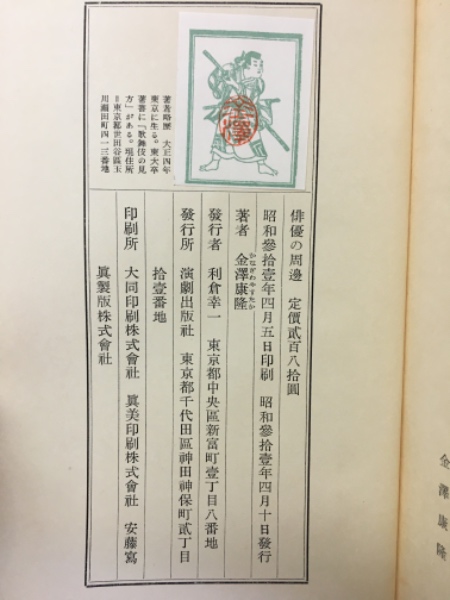 俳優の周邊　定價貳百八拾圓
昭和參拾壹年四月五日印刷　昭和參拾壹年四月十日發行
かなざわやすたか
著者　金澤康隆
發行者　利倉幸一　東京都中央區新富町壹丁目八番地
發行所　演劇出版社　東京都千代田區神田神保町貳丁目
拾壹番地
印刷所　大同印刷株式會社　眞美印刷株式會社　安藤寫
眞製版株式會社
著者略歴　大正四年
東京に生る。東大卒
著書に「歌舞伎の見
方」がある。現住所
＝東京都世田谷區玉
川瀬田町四一三番地
金澤
金澤康隆